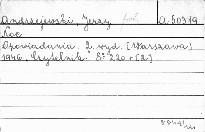 Andrzejewski, Jerzy A.50319
Noc
Opowiadania. 2. wyd. [Warszawa]
1946. Czytelnik. 8° 220 + [2]